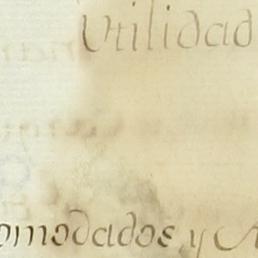 Utilidad
omodados y